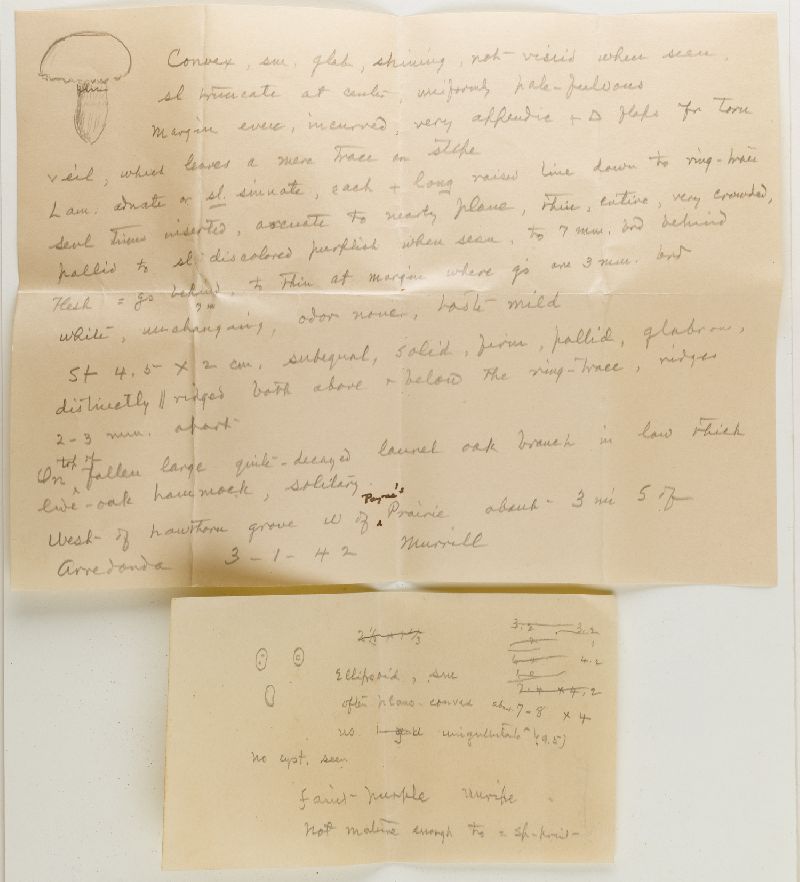 Convex, sm, glab, shining, not viscid when seen,
sl truncate at center, uniformly pale-fulvous
Margin even, incurved, very appendic + Δ flaps fr torn
veil, which leaves a mere trace on stipe
Lam. adnate or sl. sinuate, each + long raised line down to ring-trace
sevl times inserted, arcuate to nearly plane, thin, entire, very crowded,
pallid to sl discolored purplish when seen, to 7 mm. brd behind
Flesh = gs behind, to thin at margin where gs are 3 mm. brd
white, unchanging, odor none, taste mild
St 4.5 x 2 cm, subequal, solid, firm, pallid, glabrous,
distinctly || ridged both above + below the ring-trace, ridges
2-3 mm. apart
On top of fallen large quite-decayed laurel oak branch in low thick
live-oak hammock, solitary.
West of hawthorn grove W of Payne's Prairie about 3 mi S of
Arredonda 3-1-42 Murrill
3.2 3.2
Ellipsoid, sm 4.2
2.4 x 4.2
often plano-convex 7-8 x 4
us uniguttate (9.5)
no cyst. seen
faint-purple unripe
Not mature enough to = sp-print